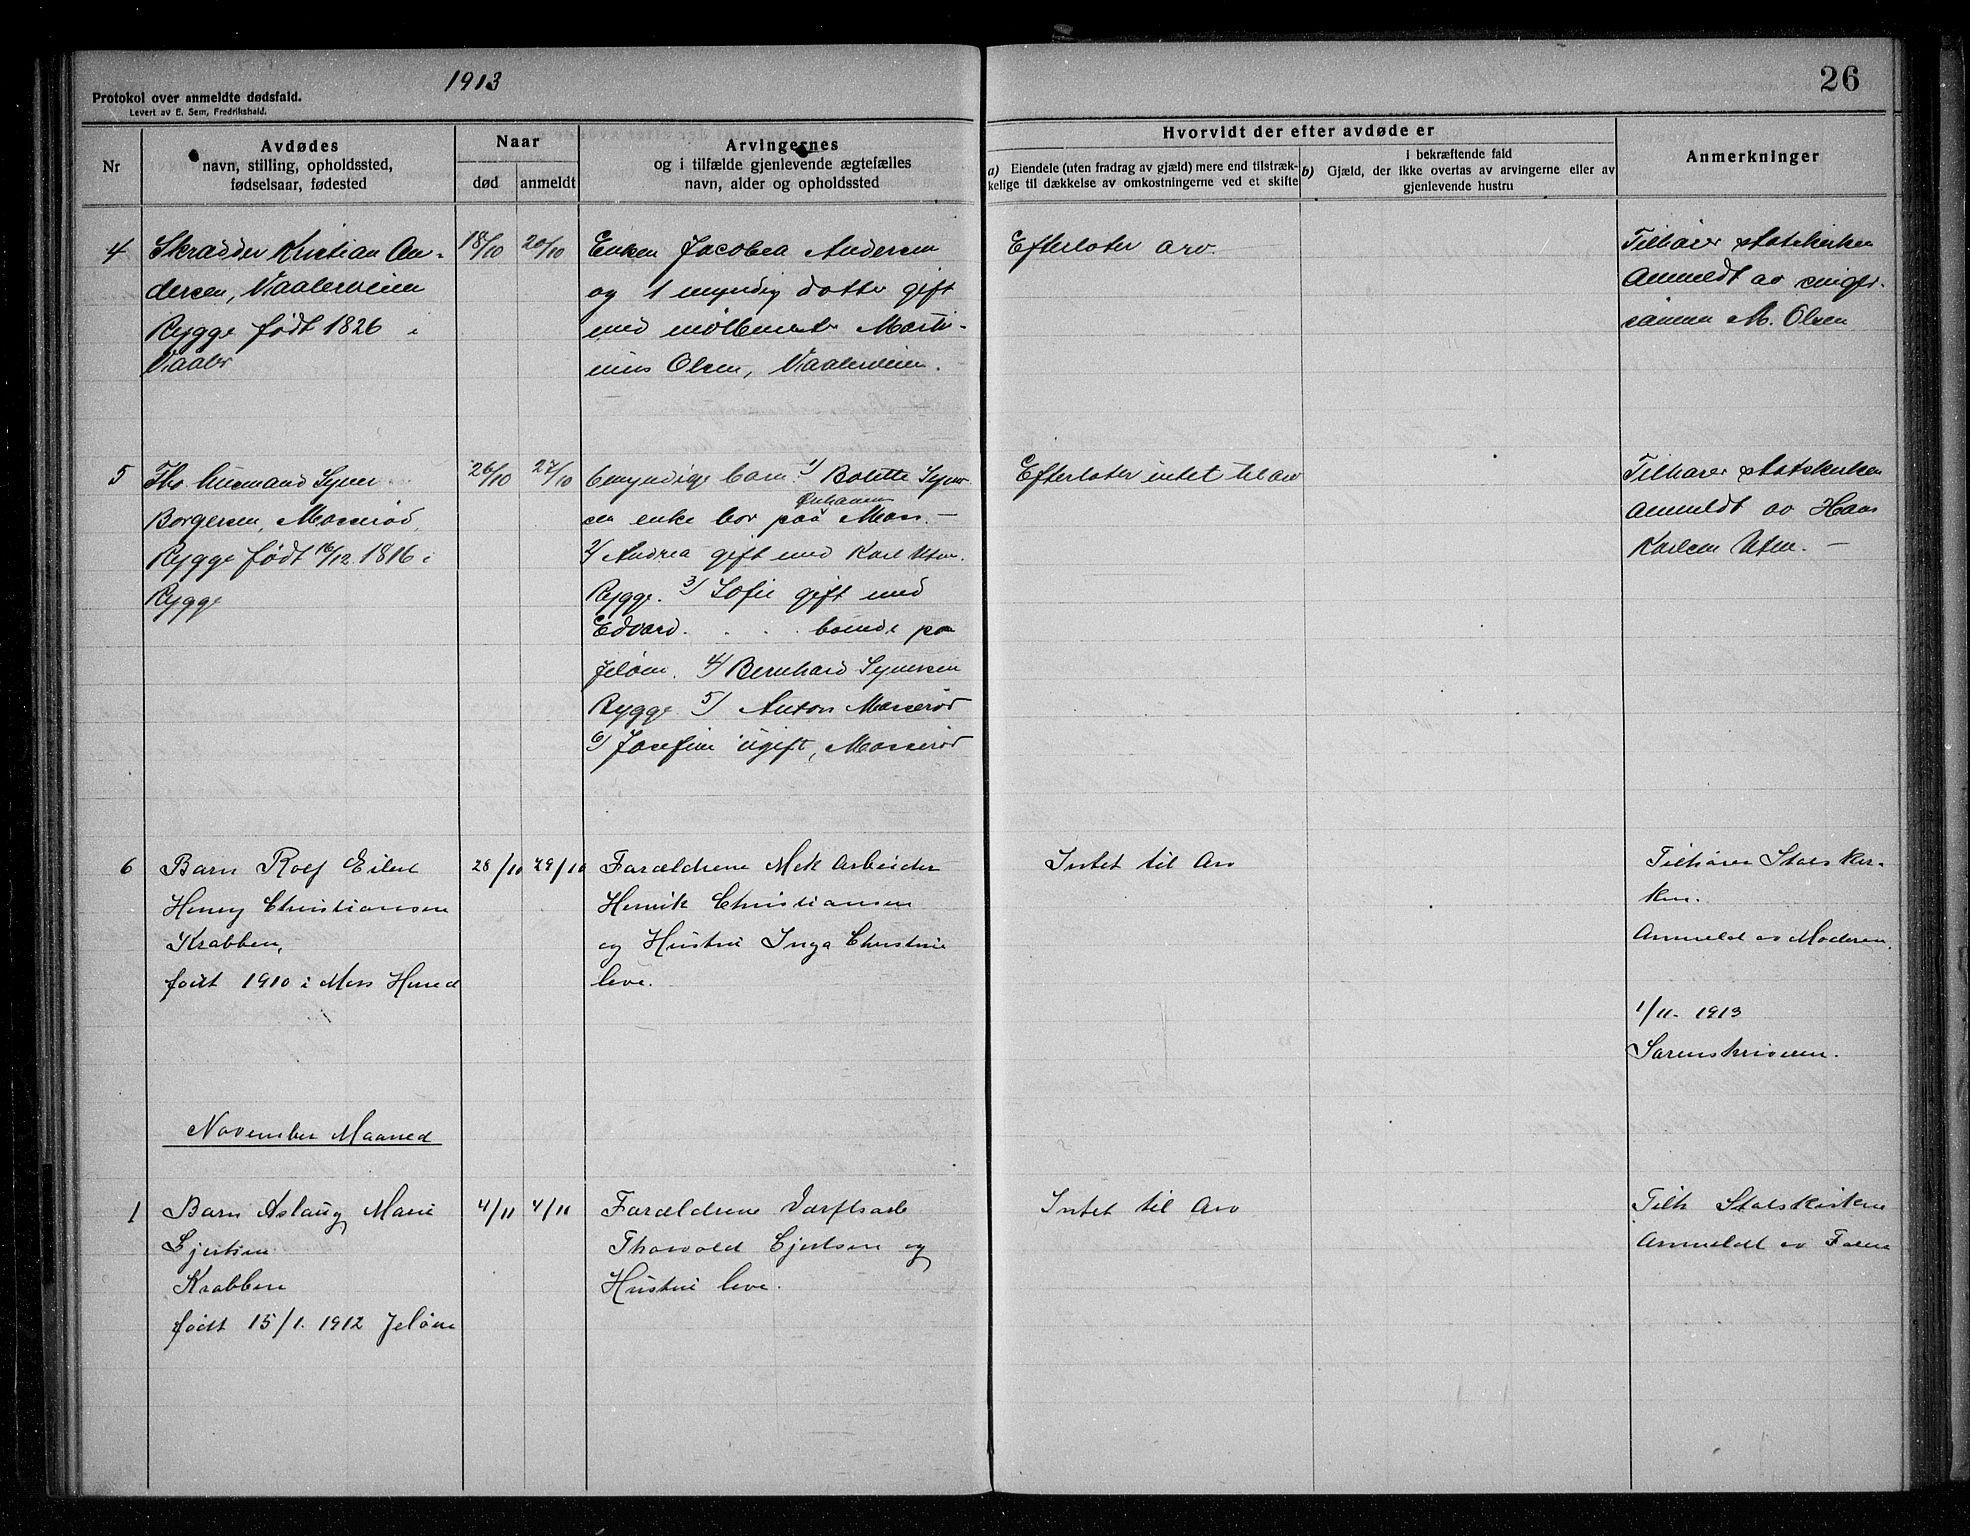 1913
26
Protokol over anmeldte dødsfald.
Levert av E. Sem, Fredrikshald.
Nr
Avdødes
navn, stilling, opholdssted,
fødselsaar, fødested
Naar
død
anmeldt
Arvingernes
og i tilfælde gjenlevende ægtefælles
navn, alder og opholdssted
Hvorvidt der efter avdøde er
a) Eiendele (uten fradrag av gjæld) mere end tilstræk-
kelige til dækkelse av omkostningerne ved et skifte
I bekræftende fald
b) Gjæld, der ikke overtas av arvingerne eller av
gjenlevende hustru
Anmerkninger
4
Skrædder Kristian An-
dersen, Vaalerveien
Rygge født 1826 i
Vaaler
18/10
20/10
Enken Jacobea Andersen
og 1 myndig datter gift
med Marti-
nius Olsen, Vaalerveien.
Efterlater arv.
Tilhører statskirken
Anmeldt av sviger-
sønnen M. Olsen
5
Fhv husmand Syver
Borgersen, Mosserød,
Rygge født 16/12 1816 i
Rygge
26/10
27/10
6 myndige barn. 1/ Bolette Syver-
sen enke bor paa Moss. —
2/ Andrea gift med Karl Uten.
Rygge. 3/ Sofie gift med
Edvard . . . boende paa
Jeløen. 4/ Bernhard Syversen
Rygge 5/ Anton Mosserød
6/ Josefine ugift, Mosserød
Efterlater intet til arv
Tilhører statskirken
Anmeldt av Hans
Karlsen Uten. —
6
Barn Rolf Eilert
Henry Christiansen
Krabben,
født 1910 i Moss Herred
28/10
29/10
Forældrene Mek Arbeider
Henrik Christiansen
og Hustru Inga Christine
leve.
Intet til Arv
Tilhører Statskir-
ken.
Anmeldt av Moderen.
1/11 - 1913
Sorenskriveren.
November Maaned
1
Barn Aslaug Marie
Gjertsen
Krabben
født 15/1. 1912 Jeløen
4/11
4/11
Forældrene Værftsarb
Thorvald Gjertsen og
Hustru leve.
Intet til Arv
Tilh Statskirken
Anmeldt av Faren